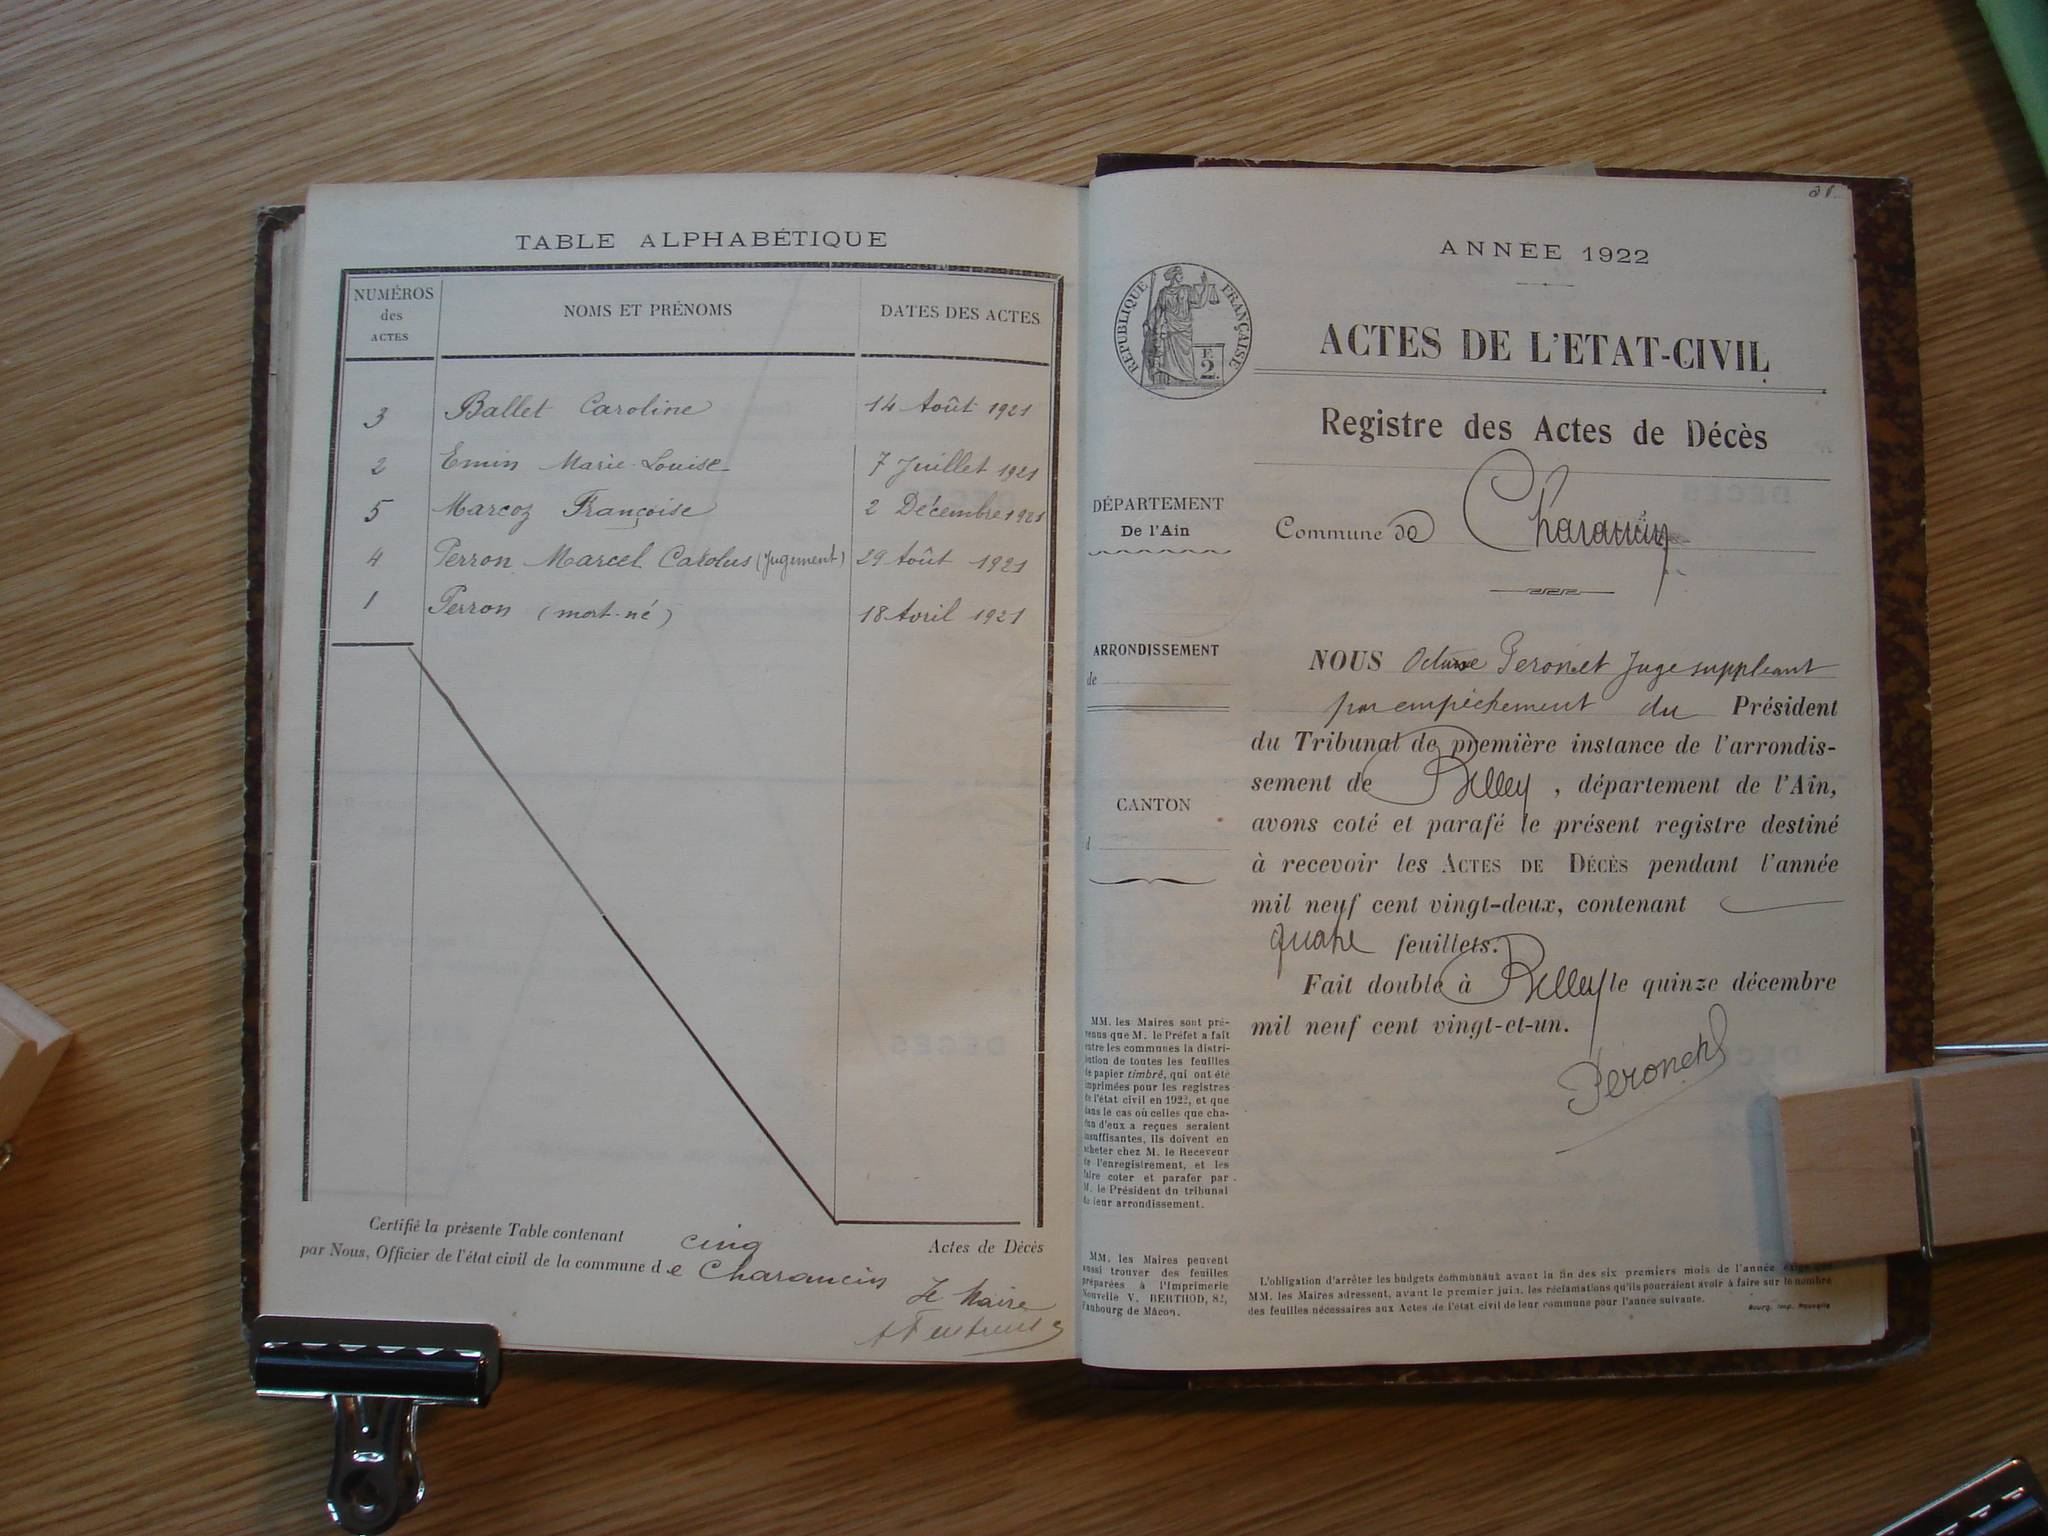 TABLE ALPHABÉTIQUE
NUMÉROS des ACTES
NOMS ET PRÉNOMS
DATES DES ACTES
3 Ballet Caroline 14 Août 1921
2 Emin Marie-Louise 7 Juillet 1921
5 Marcoz Françoise 2 Décembre 1921
4 Perron Marcel Carolus (Jugement) 29 Août 1921
1 Perron (mort-né) 18 Avril 1921
Certifié la présente Table contenant cinq Actes de Décès
par Nous, Officier de l'état civil de la commune de Charancin
Le Maire
ANNÉE 1922
RÉPUBLIQUE FRANÇAISE
F.
2.
ACTES DE L'ETAT-CIVIL
Registre des Actes de Décès
DÉPARTEMENT
De l'Ain
Commune de Charancin
ARRONDISSEMENT
de
CANTON
d
NOUS Octave Peronnet Juge suppléant
par empêchement du Président
du Tribunal de première instance de l'arrondis-
sement de Belley, département de l'Ain,
avons coté et parafé le présent registre destiné
à recevoir les ACTES DE DÉCÈS pendant l'année
mil neuf cent vingt-deux, contenant
quatre feuillets.
Fait double à Belley le quinze décembre
mil neuf cent vingt-et-un.
MM. les Maires sont pré-
venus que M. le Préfet a fait
entre les communes la distri-
bution de toutes les feuilles
de papier timbré, qui ont été
imprimées pour les registres
de l'état civil en 1922, et que
dans le cas où celles que cha-
cun d'eux a reçues seraient
insuffisantes, ils doivent en
acheter chez M. le Receveur
de l'enregistrement, et les
faire coter et parafer par
M. le Président du tribunal
de leur arrondissement.
MM. les Maires peuvent
aussi trouver des feuilles
préparées à l'Imprimerie
Nouvelle V. BERTHOD, 82,
Faubourg de Mâcon.
L'obligation d'arrêter les budgets communaux avant la fin des six premiers mois de l'année exige que
MM. les Maires adressent, avant le premier juin, les réclamations qu'ils pourraient avoir à faire sur le nombre
des feuilles nécessaires aux Actes de l'état civil de leur commune pour l'année suivante.